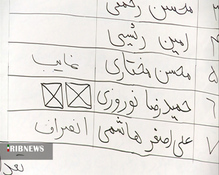 ۳ محسن رحمتی
۴ امین رئیسی
۵ محسن مختاری غایب
۶ حمیدرضا نوروزی
۷ علی اصغر هاشمی انصراف
IRIBNEWS